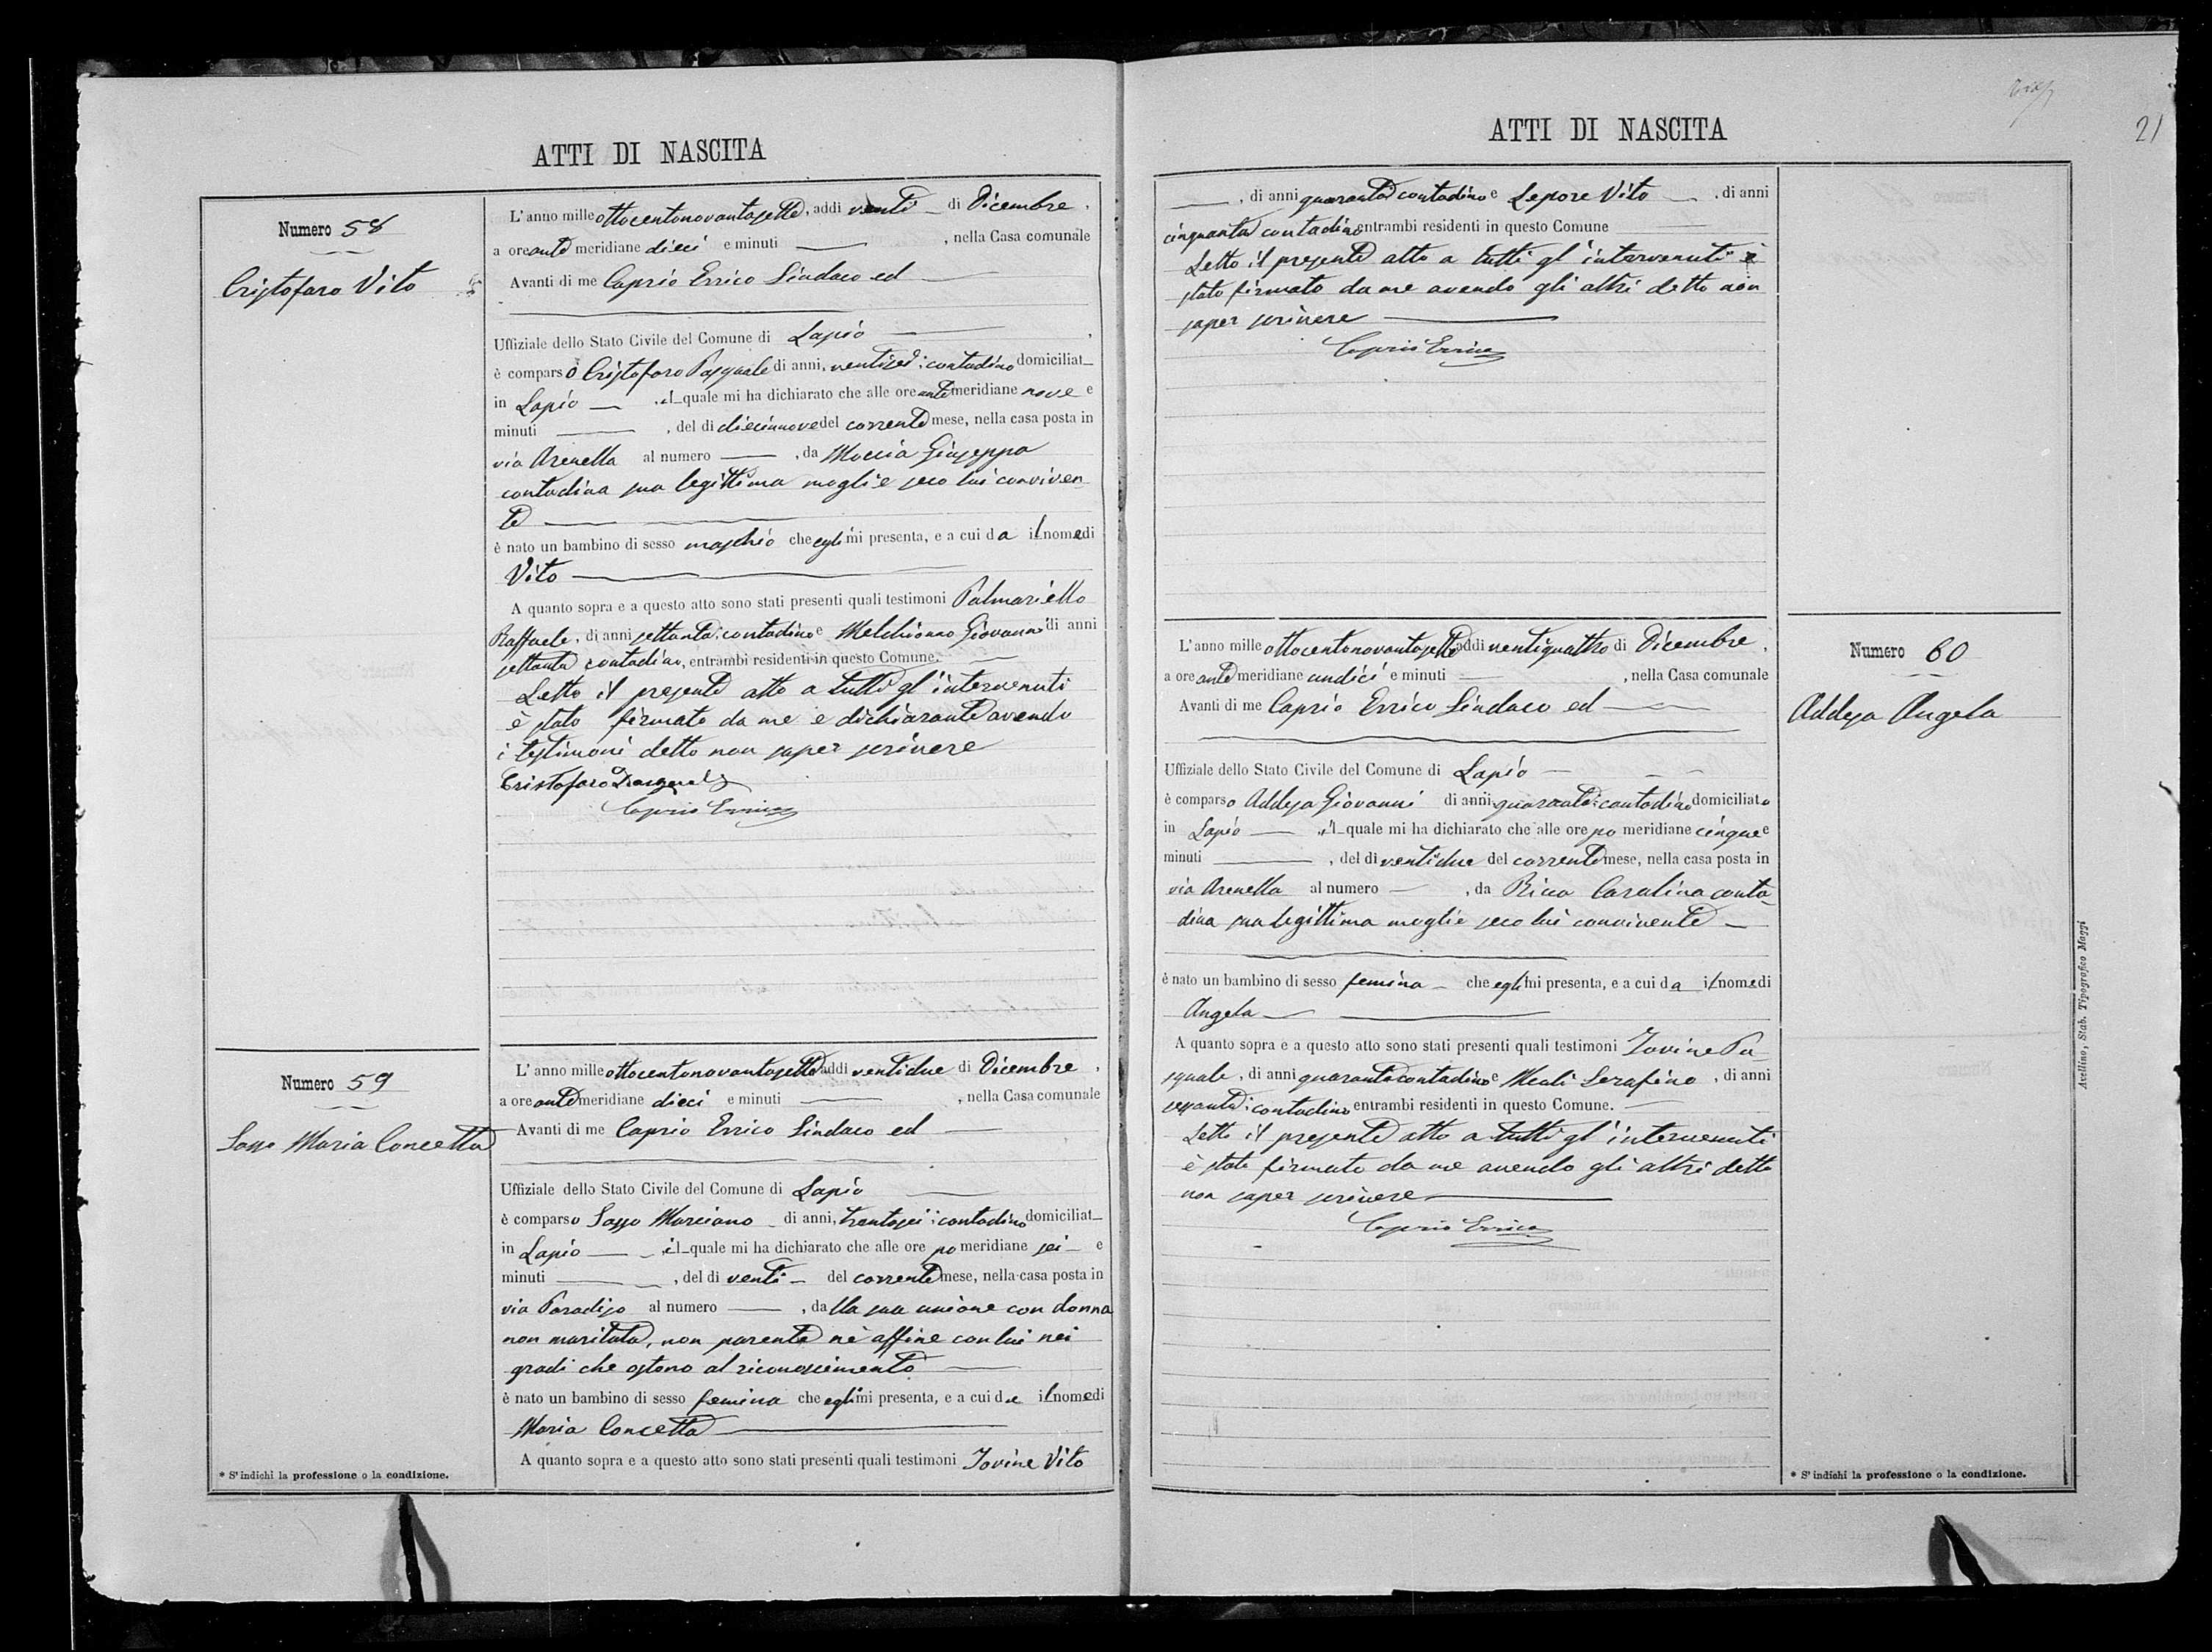 ATTI DI NASCITA
Numero 58
Cristofaro Vito
L'anno mille ottocentonovantasette, addi venti di Dicembre,
a ore ante meridiane dieci e minuti , nella Casa comunale
Avanti di me Caprio Errico Sindaco ed
Uffiziale dello Stato Civile del Comune di Lapio ,
è comparso Cristofaro Pasquale di anni, ventisei: contadino domiciliat
in Lapio , il quale mi ha dichiarato che alle ore ante meridiane nove e
minuti , del di diecinnove del corrente mese, nella casa posta in
via Arenella al numero , da Moccia Giuseppa
contadina sua legittima moglie seco lui conviven
te
è nato un bambino di sesso maschio che egli mi presenta, e a cui da il nome di
Vito
A quanto sopra e a questo atto sono stati presenti quali testimoni Palmariello
Raffaele, di anni settanta: contadino e Melchionno Giovanni di anni
settanta contadino, entrambi residenti in questo Comune.
Letto il presente atto a tutti gl'intervenuti
è stato firmato da me e dichiarante avendo
i testimoni detto non saper scrivere
Cristofaro Pasquale
Caprio Errico
Numero 59
Sasso Maria Concetta
L'anno mille ottocentonovantasette addi ventidue di Dicembre,
a ore ante meridiane dieci e minuti , nella Casa comunale
Avanti di me Caprio Errico Sindaco ed
Uffiziale dello Stato Civile del Comune di Lapio
è comparso Sasso Marciano di anni, trentasei: contadino domiciliat
in Lapio , il quale mi ha dichiarato che alle ore po meridiane sei e
minuti , del di venti del corrente mese, nella casa posta in
via Paradiso al numero , dalla sua unione con donna
non maritata, non parente nè affine con lui nei
gradi che ostano al riconoscimento
è nato un bambino di sesso femina che egli mi presenta, e a cui da il nome di
Maria Concetta
A quanto sopra e a questo atto sono stati presenti quali testimoni Iovine Vito
* S'indichi la professione o la condizione.
21
ATTI DI NASCITA
, di anni quaranta contadino e Lepore Vito , di anni
cinquanta contadino entrambi residenti in questo Comune
Letto il presente atto a tutti gl'intervenuti è
stato firmato da me avendo gli altri detto non
saper scrivere
Caprio Errico
Numero 60
Addesa Angela
L'anno mille ottocentonovantasette addi ventiquattro di Dicembre,
a ore ante meridiane undici e minuti , nella Casa comunale
Avanti di me Caprio Errico Sindaco ed
Uffiziale dello Stato Civile del Comune di Lapio
è comparso Addesa Giovanni di anni quaranta: contadino domiciliato
in Lapio , il quale mi ha dichiarato che alle ore po meridiane cinque e
minuti , del di ventidue del corrente mese, nella casa posta in
via Arenella al numero , da Ricco Carolina conta
dina sua legittima moglie seco lui convivente
è nato un bambino di sesso femina che egli mi presenta, e a cui da il nome di
Angela
A quanto sopra e a questo atto sono stati presenti quali testimoni Iovine Pa-
squale, di anni quaranta contadino e Meoli Serafino, di anni
sessanta: contadino entrambi residenti in questo Comune.
Letto il presente atto a tutti gl'intervenuti
è stato firmato da me avendo gli altri detto
non saper scrivere
Caprio Errico
* S'indichi la professione o la condizione.
Avellino, Stab. Tipografico Maggi